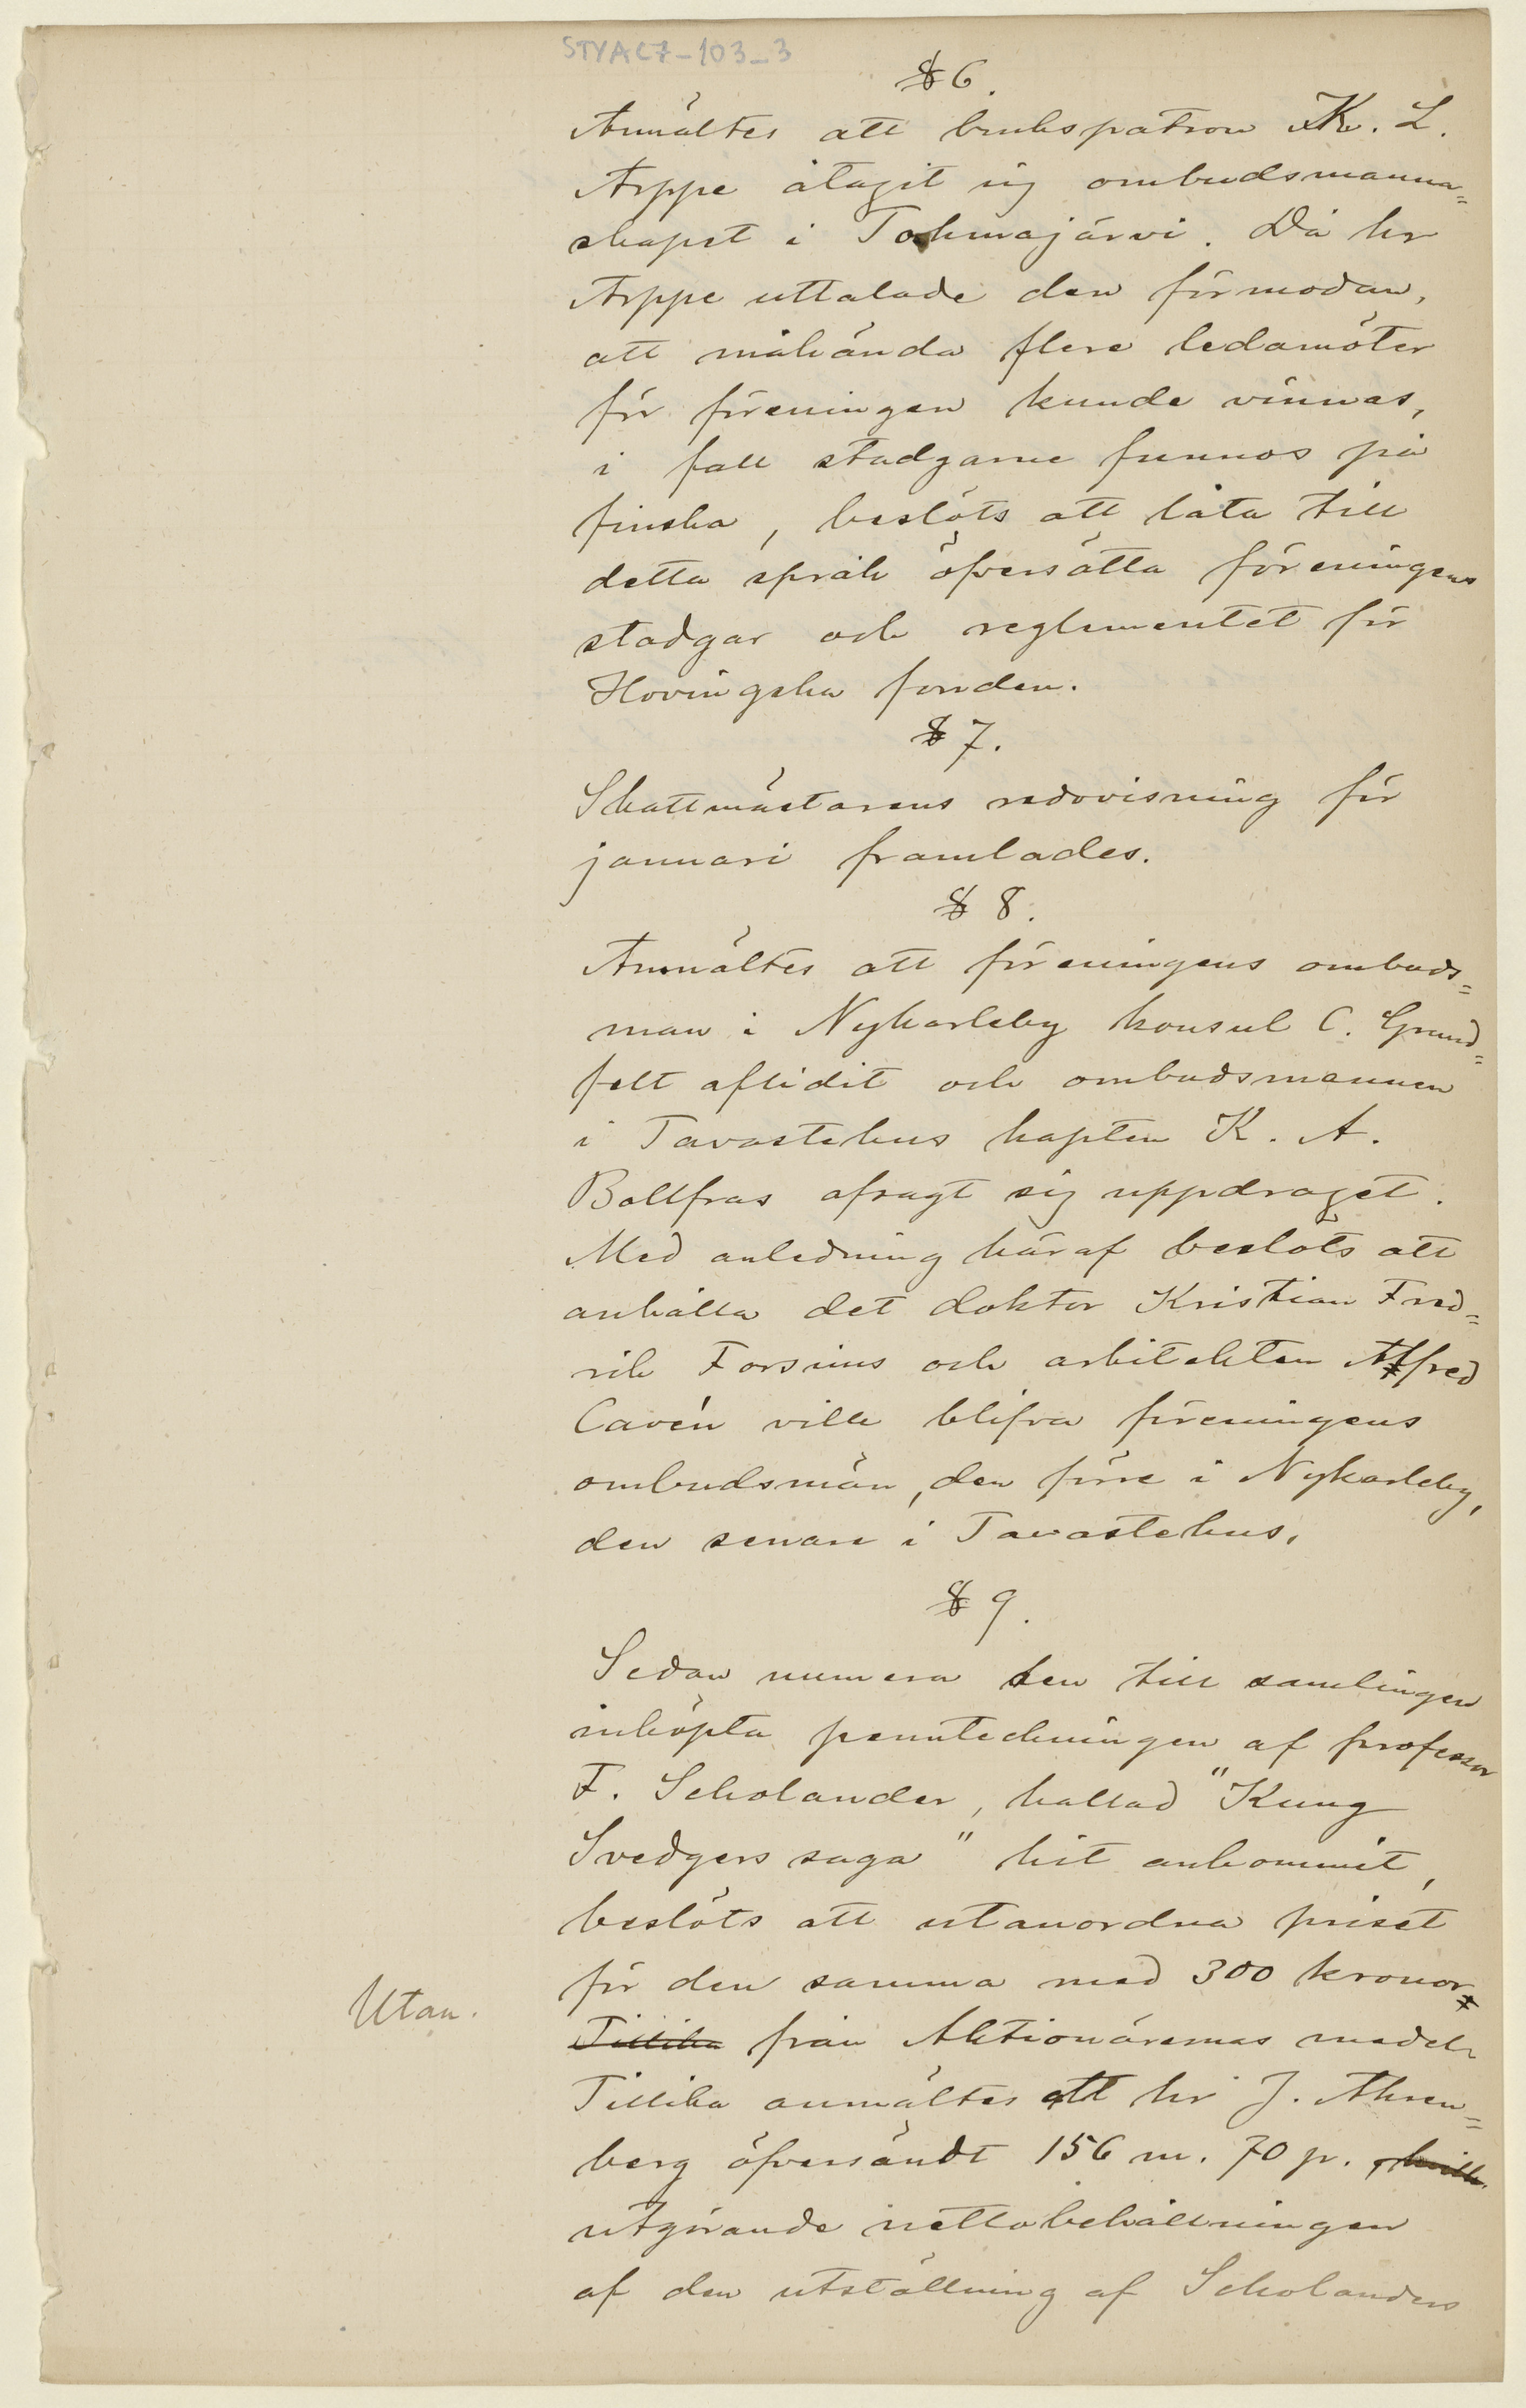 STYAC7-103_3
§ 6.
Anmältes att brukspatron K. L.
Arppe åtagit sig ombudsmanna=
skapet i Tohmajärvi. Då hr
Arppe uttalade den förmodan,
att måhända flere ledamöter
för föreningen kunde vinnas,
i fall stadgarne funnos på
finska, beslöts att låta till
detta språk öfversätta föreningens
stadgar och reglementet för
Hovingska fonden.
§ 7.
Skattmästarens redovisning för
januari framlades.
§ 8.
Anmältes att föreningens ombuds=
man i Nykarleby konsul C. Grund=
felt aflidit och ombudsmannen
i Tavastehus kapten K. A.
Bollfras afsagt sig uppdraget.
Med anledning häraf beslöts att
anhålla det doktor Kristian Fred=
rik Forsius och arkitekten Alfred
Cavén ville blifva föreningens
ombudsmän, den förre i Nykarleby,
den senare i Tavastehus.
§ 9.
Sedan numera den till samlingen
inköpta penntekningen af professor
F. Scholander, kallad "Kung
Svedgers saga" hit ankommit,
beslöts att utanordna priset
för den samma med 300 kronor
Utan.
Tillika från Aktionärernas medel.
Tillika anmältes att hr J. Ahren=
berg öfversändt 156 m. 70 p.
utgörande nettobehållningen
af den utställning af Scholanders